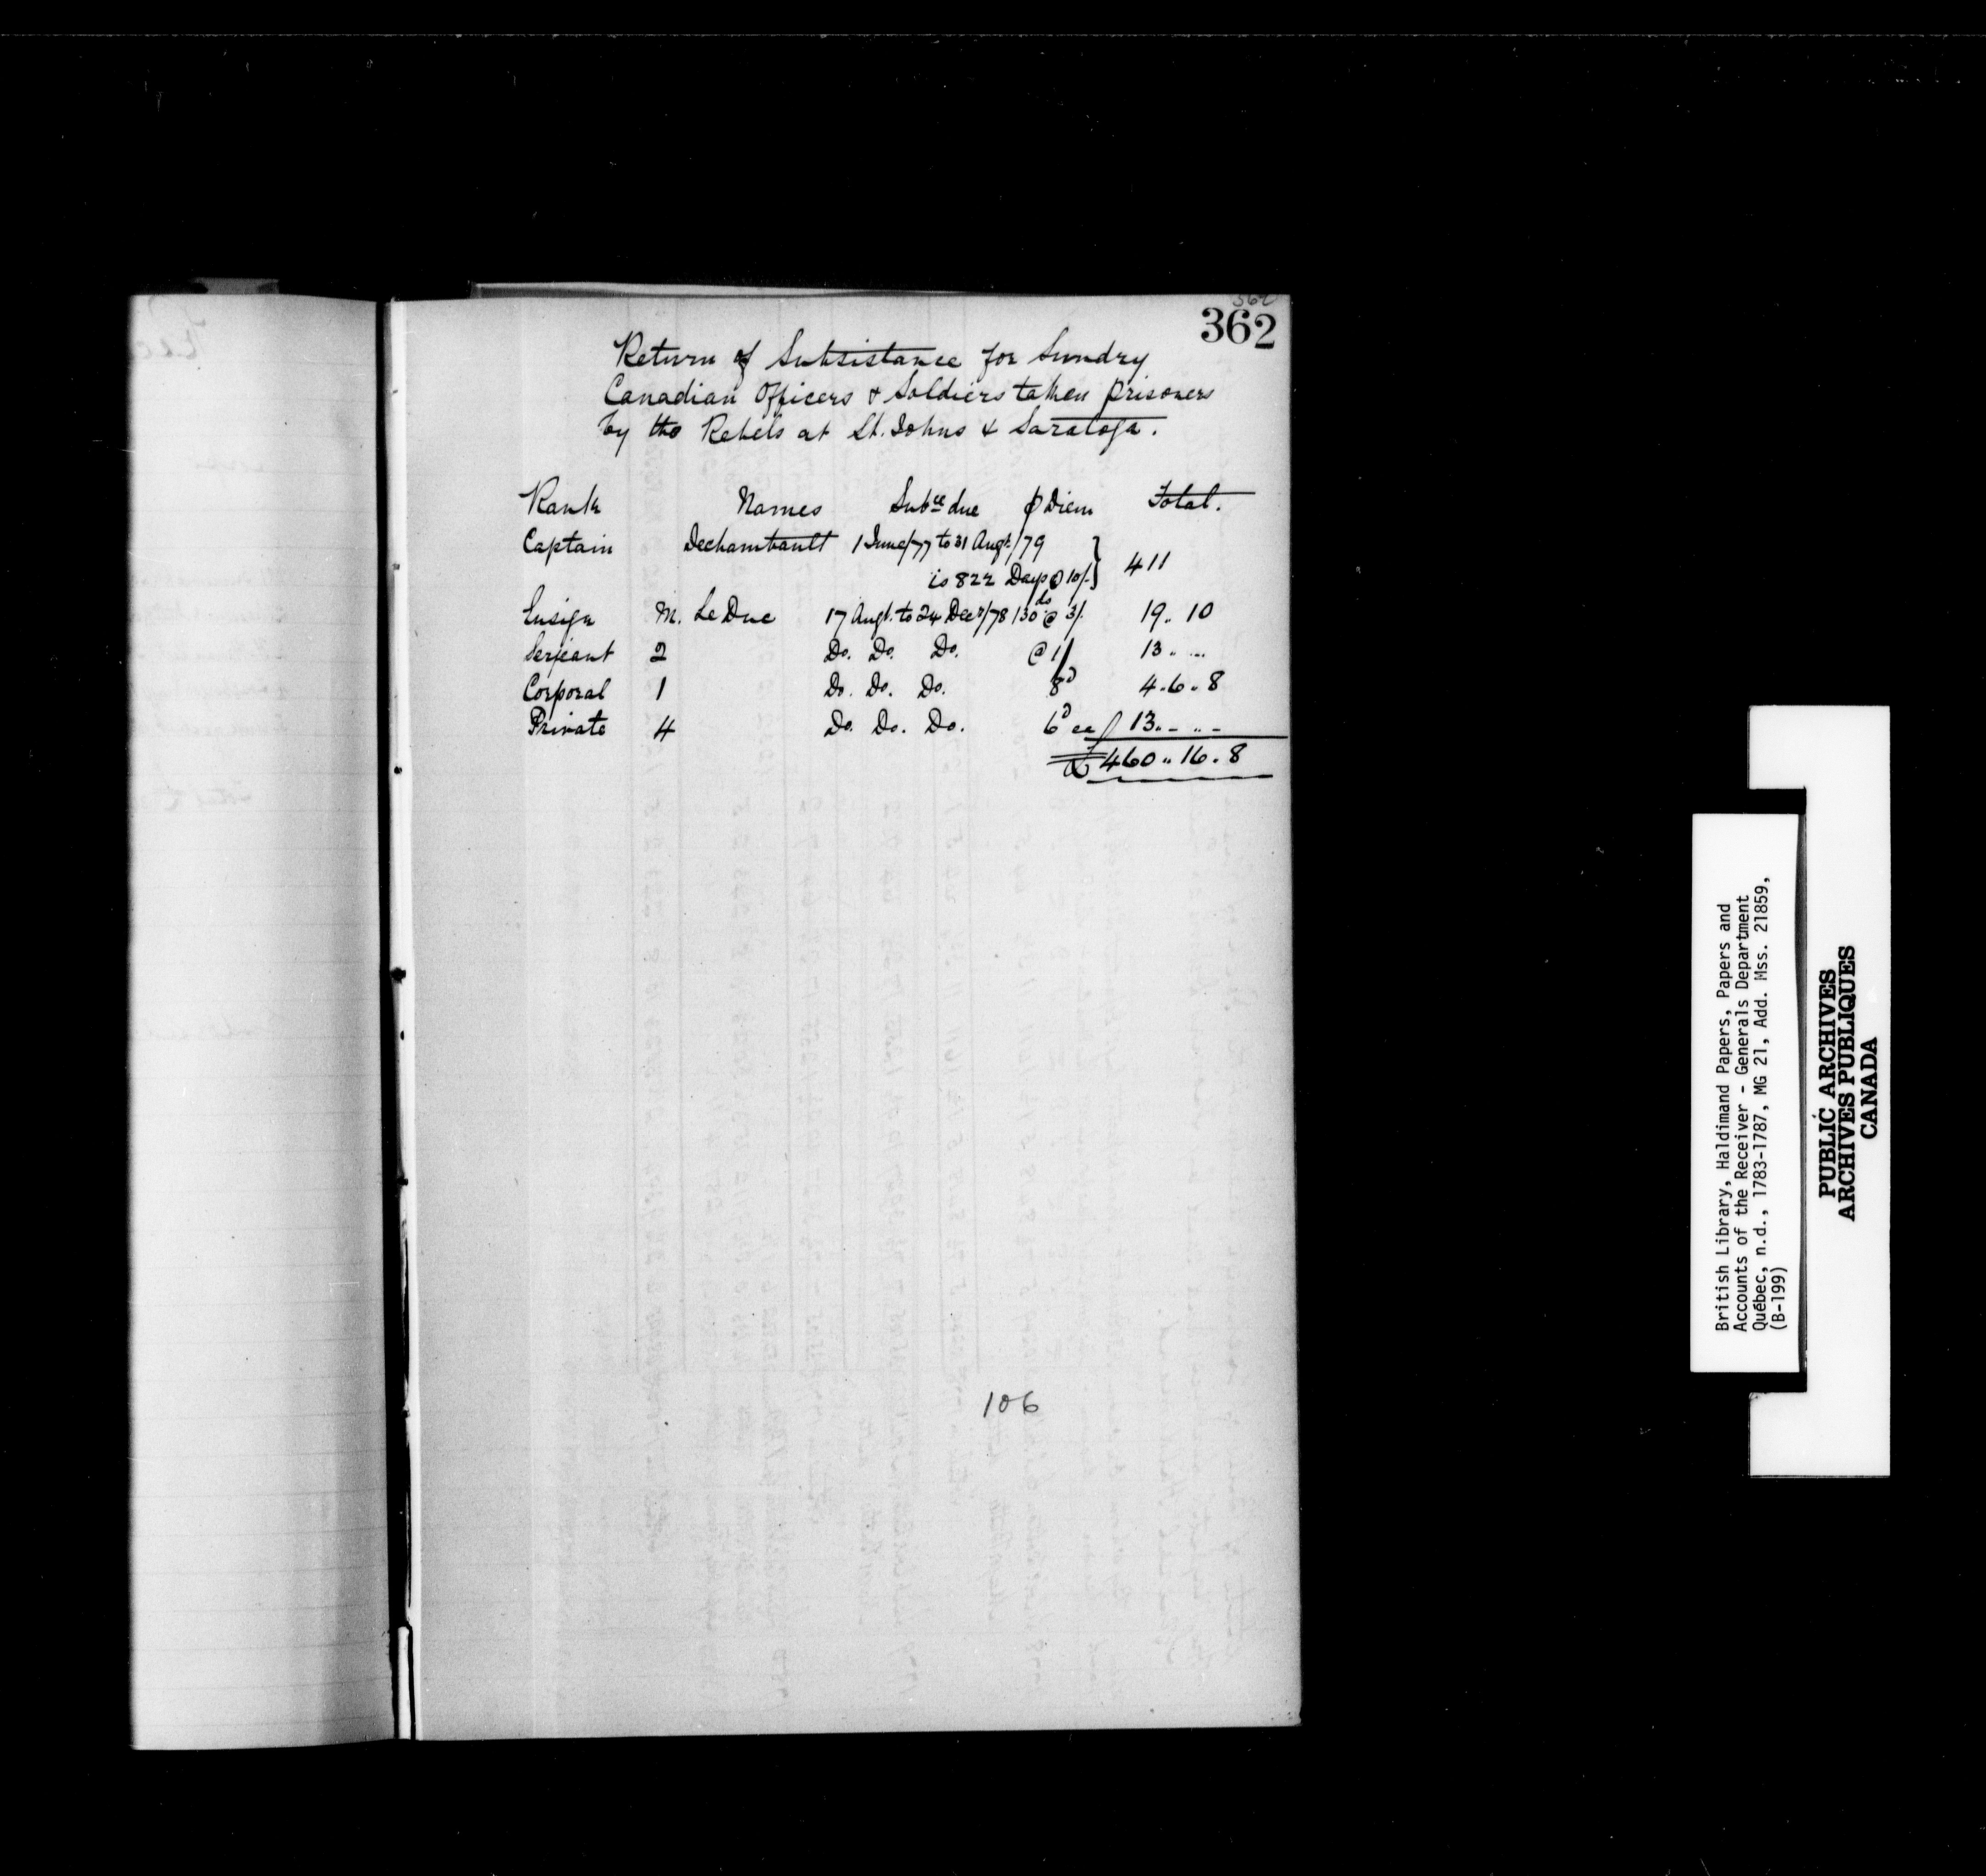 362
362
Return of Subsistance for Sundry
Canadian Officers & Soldiers taken prisoners
by the Rebels at St. Johns & Saratoga.
Rank Names Subce due ⅌ Diem Total.
Captain Dechambault 1 June/77 to 31 Augt/79
is 822 Days @ 10/. } 411
Ensign M. LeDuc 17 Augt. to 24 Decr/78 130 ds @ 3/. 19.. 10
Serjeant 2 Do. Do. Do. @ 1/ 13.. ...
Corporal 1 Do. Do. Do. 8D 4.6.8
Private 4 Do. Do. Do. 6D ea 13..-..-
£460..16.8
106
British Library, Haldimand Papers, Papers and
Accounts of the Receiver - Generals Department
Québec, n.d., 1783-1787, MG 21, Add. Mss. 21859,
(B-199)
PUBLIC ARCHIVES
ARCHIVES PUBLIQUES
CANADA